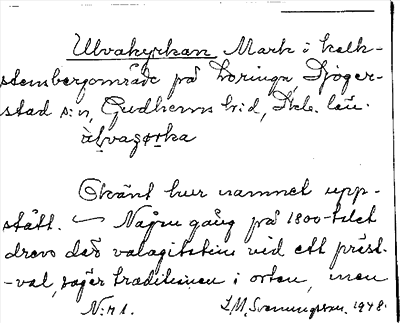 Ulvakyrkan Mark i kalk-
stensbergområde på Loringa, Djäger-
stad s:n, Gudhems h:d, Skb. län.
Okänt hur namnet upp-
stått. – Någon gång på 1800-talet
drevs där valagitation vid ett präst-
-val, säger traditionen i orten, men
N:r 1. L.M. Svenungsson. 1948.